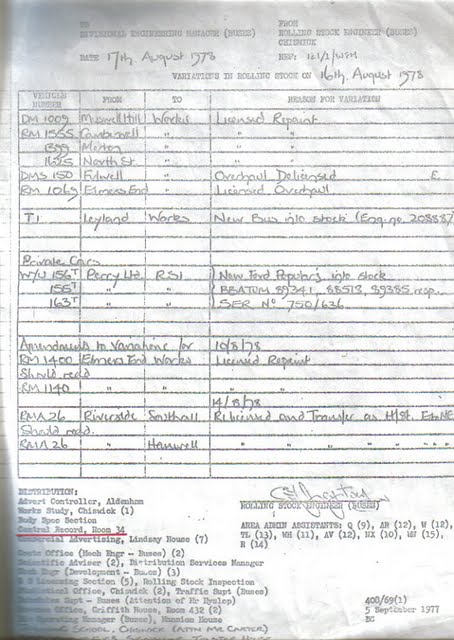 TO FROM
DIVISIONAL ENGINEERING MANAGER (BUSES) ROLLING STOCK ENGINEER (BUSES)
CHISWICK
DATE 17th. August 1978 REF:
VARIATIONS IN ROLLING STOCK ON 16th. August 1978
VEHICLE NUMBER FROM TO REASON FOR VARIATION
DM 1009 Muswell Hill Works Licensed Repaint
RM 1565 Camberwell " " "
1399 Merton " " "
1625 North St. " " "
DMS 150 Fulwell " Overhaul Delicensed E.
RM 1069 Elmers End " Licensed Overhaul
T1 Leyland Works New Bus into stock (Eng. no. 208887)
Private Cars
WYU 156T Perry Ltd. RS1 New Ford Popular's into stock
155T " " BBATUM 89341, 88513, 89385 resp.
163T " " SER No 750/636
Amendments to Variations for 10/8/78
RM 1400 Elmers End Works Licensed Repaint
Should read
RM 1140 " " " "
14/8/78
RMA 26 Riverside Southall Relicensed and Transfer as H/St. E to NE
Should read.
RMA 26 " Hanwell " " " " " "
DISTRIBUTION:
Advert Controller, Aldenham
Works Study, Chiswick (1)
Body Spec Section
Central Record, Room 34
Commercial Advertising, Lindsay House (7)
Costs Office (Mech Engr - Buses) (2)
Scientific Adviser (2), Distribution Services Manager
Engr (Development - Buses) (3)
Licensing Section (5), Rolling Stock Inspection
Office, Chiswick (2), Traffic Supt (Buses)
Supt - Buses (Attention of Mr Hyslop)
Office, Griffith House, Room 432 (2)
Operating Manager (Buses), Mansion House
SCHOOL, CHISWICK (ATTN MR CARTER)
ROLLING STOCK ENGINEER (BUSES)
AREA ADMIN ASSISTANTS: Q (9), AR (12), W (12),
TL (13), WH (11), AV (12), NX (10), WN (15),
R (14)
400/69(1)
5 September 1977